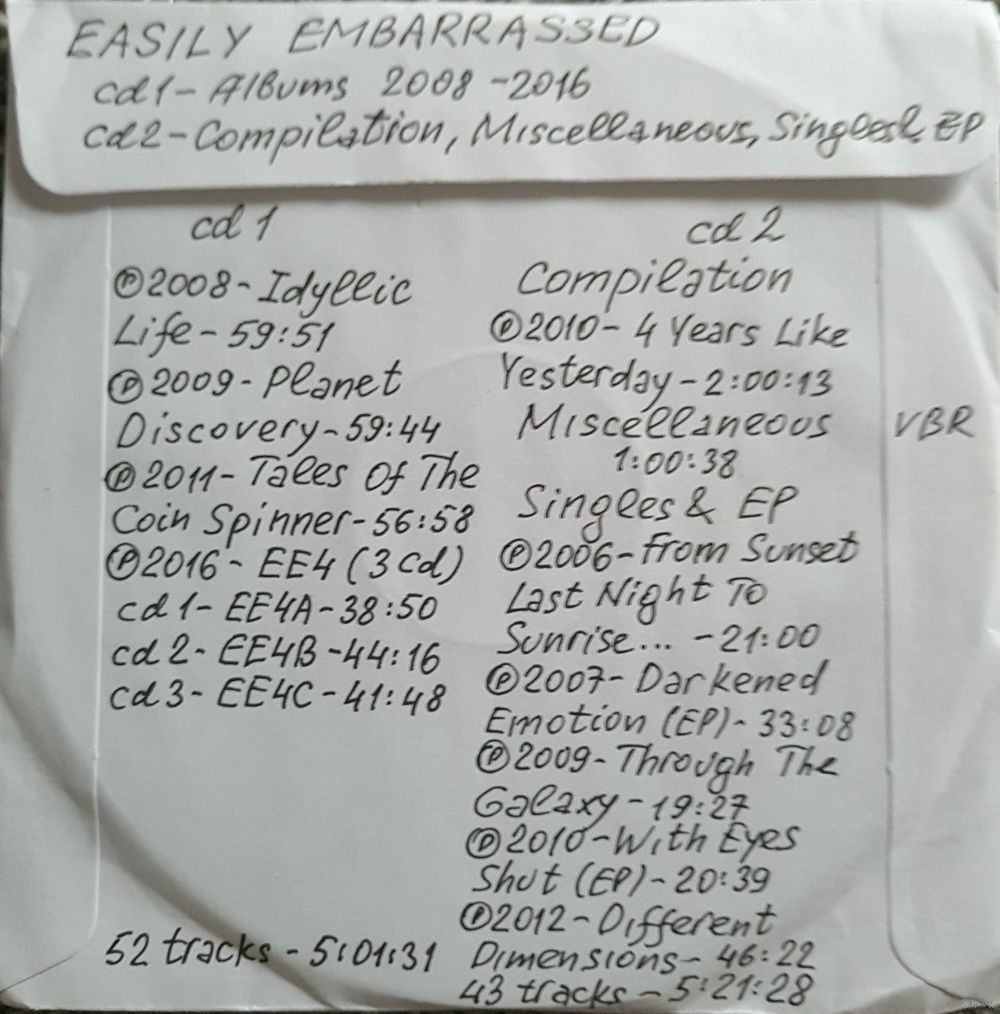 EASILY EMBARRASSED
cd1-Albums 2008-2016
cd2-Compilation, Miscellaneous, Singles & EP
cd 1
Ⓟ2008-Idyllic
Life-59:51
Ⓟ2009-Planet
Discovery-59:44
Ⓟ2011-Tales Of The
Coin Spinner-56:58
Ⓟ2016-EE4 (3 cd)
cd1-EE4A-38:50
cd2-EE4B-44:16
cd3-EE4C-41:48
52 tracks-5:01:31
cd 2
Compilation
Ⓟ2010-4 Years Like
Yesterday-2:00:13
Miscellaneous
1:00:38
Singles & EP
Ⓟ2006-From Sunset
Last Night To
Sunrise... -21:00
Ⓟ2007-Darkened
Emotion (EP)-33:08
Ⓟ2009-Through The
Galaxy-19:27
Ⓟ2010-With Eyes
Shut (EP)-20:39
Ⓟ2012-Different
Dimensions-46:22
43 tracks-5:21:28
VBR